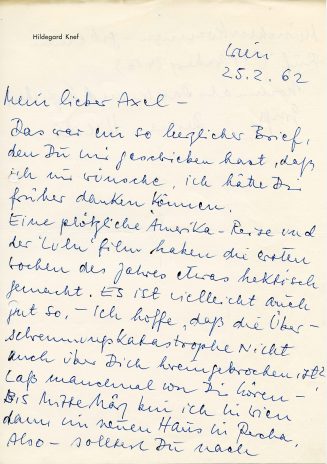 Hildegard Knef
Wien
25.2.62
Mein lieber Axel –
Das war ein so herzlicher Brief,
den Du mir geschrieben hast, daß
ich mir wünsche, ich hätte Dir
früher danken können.
Eine plötzliche Amerika-Reise und
der "Lulu" film haben die ersten
Wochen des Jahres etwas hektisch
gemacht. Es ist vielleicht auch
gut so, – Ich hoffe, daß die Über-
schwemmungskatastrophe Nicht
auch über Dich hereingebrochen ist?
Laß manchmal von Dir hören –
Bis Mitte März bin ich in Wien
dann im neuen Haus in Percha.
Also – solltest Du nach